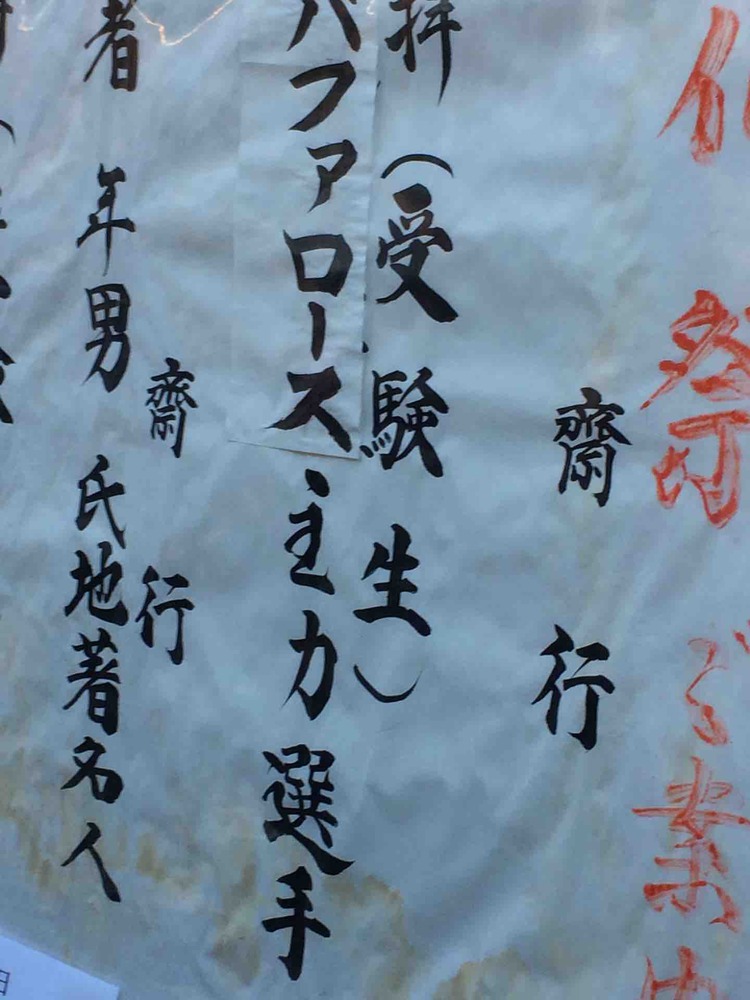 祭ご案内
齋行
拝(受験生)
バファローズ主力選手
齋行
者年男氏地著名人